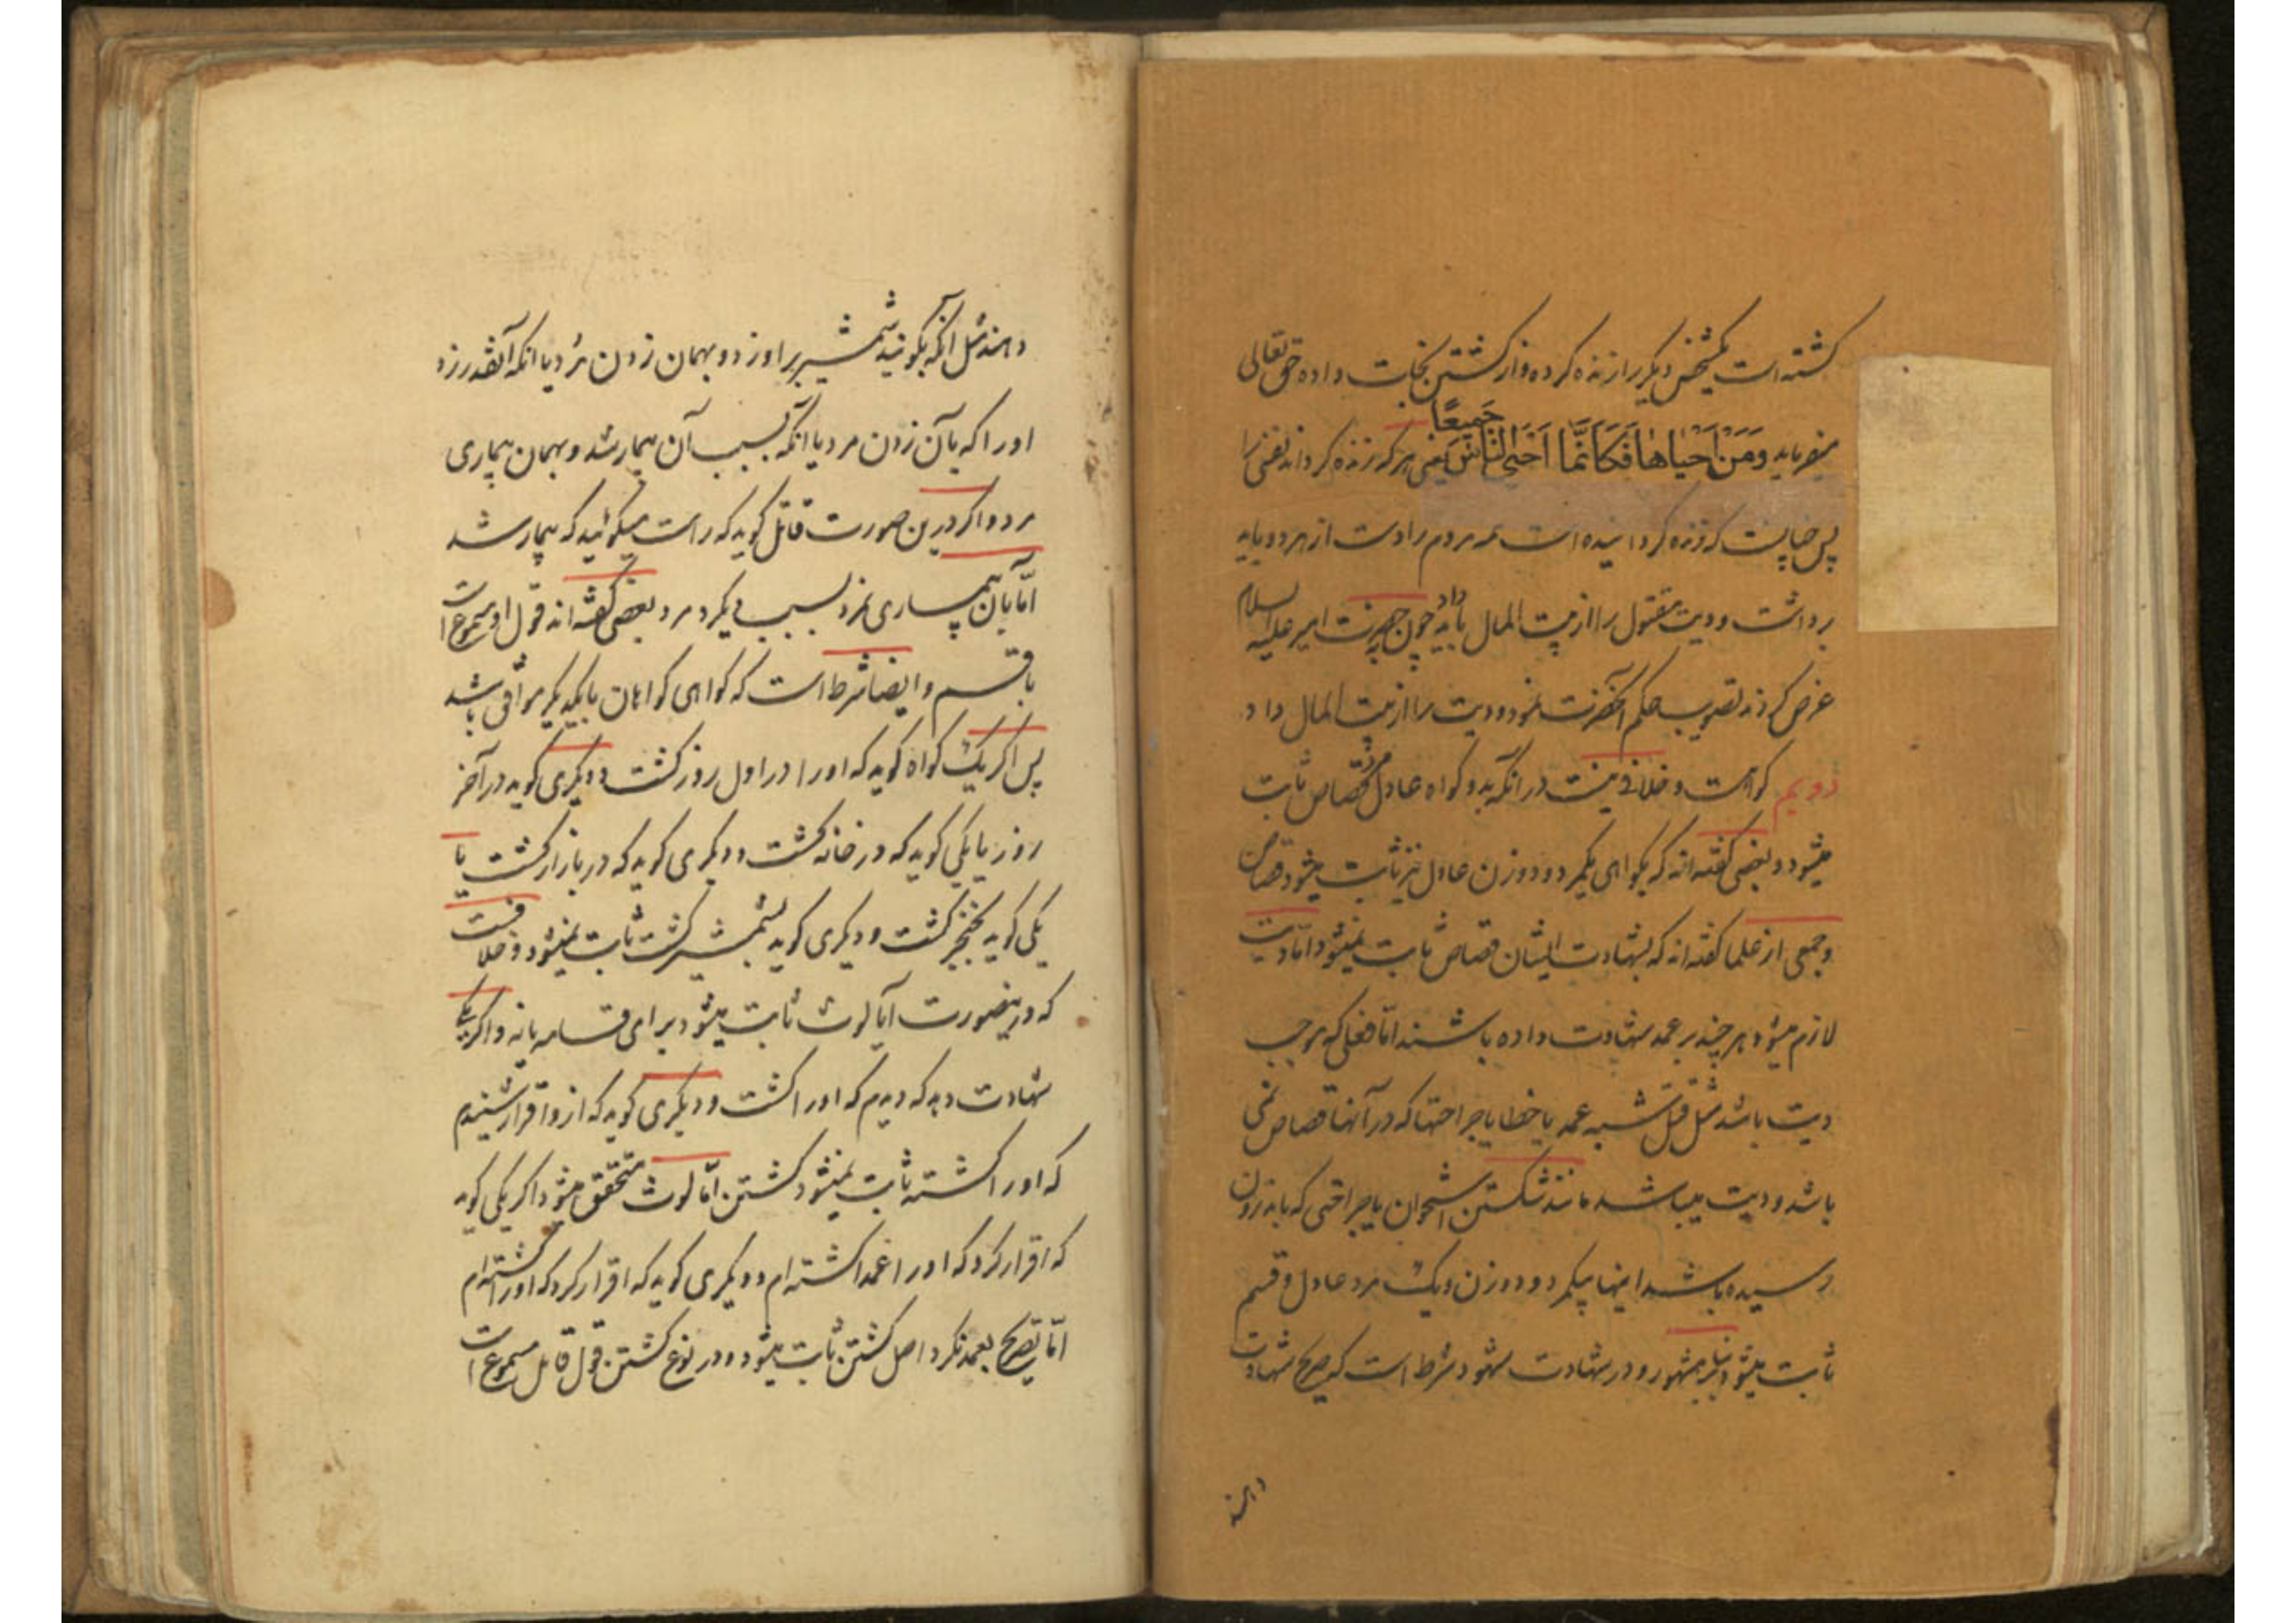 کشته است یکشخص دیگر را زنده کرده و از کشتن نجات داده حق تعالی
میفرماید وَمَنْ اَحْیٰاهٰا فَکَاَنَّمٰا اَحْیَی النّٰاسَ جَمیعًا یعنی هر که زنده کرداند نفسی را
پس چنانست که زنده کردانیده است همه مردم را دست از هر دو باید
برداشت و دیت مقتول را از بیت المال باید داد چون بحضرت امیر علیه السلام
عرض کردند تصویب حکم آنحضرت نمود و دیت را از بیت المال داد
دویم کواهست و خلافی نیست در انکه بدو کواه عادل مرد قصاص ثابت
میشود و بعضی کفته اند که بکواهی یکمرد و دو زن عادل نیز ثابت میشود قصاص
و جمعی از علما کفته اند که بشهادت ایشان قصاص ثابت نمیشود امّا دیت
لازم میشود هر چند بر عمد شهادت داده باشند امّا فعلی که موجب
دیت باشد مثل قتل شبه عمد یا خطا یا جراحتها که در آنها قصاص نمی
باشد و دیت میباشد مانند شکستن استخوان یا جراحتی که باندرون
رسیده باشد اینها بیکمرد و دو زن و یک مرد عادل و قسم
ثابت میشود بنابر مشهور و در شهادت شهود شرط است که صریح شهادت
دهند
دهند مثل انکه بکویند شمشیر بر او زد و بهمان زدن مرد یا انکه آنقدر زد
او را که بآن زدن مرد یا انکه بسبب آن بیمار شد و بهمان بیماری
مرد و اکر درین صورت قاتل کوید که راست میکوئید که بیمار شد
امّا بآن بیماری نمرد بسبب دیکر مرد بعضی کفته اند قول او مسموع است
با قسم و ایضا شرط است که کواهی کواهان با یکدیکر موافق باشد
پس اکر یک کواه کوید که او را در اول روز کشت و دیکری کوید در آخر
روز یا یکی کوید که در خانه کشت و دیکری کوید که در بازار کشت یا
یکی کوید بخنجر کشت و دیکری کوید بشمشیر کشت ثابت نمیشود و خلافست
که درینصورت آیا لوث ثابت میشود برای قسامه یا نه و اکر یکی
شهادت دهد که دیدم که او را کشت و دیکری کوید که از و اقرار شنیدم
که او را کشته ثابت نمیشود کشتن امّا لوث متحقق میشود و اکر یکی کوید
که اقرار کرد که او را عمدا کشته ام و دیکری کوید که اقرار کرد که او را کشته ام
امّا تصریح بعمد نکرد اصل کشتن ثابت میشود و در نوع کشتن قول قاتل مسموع است